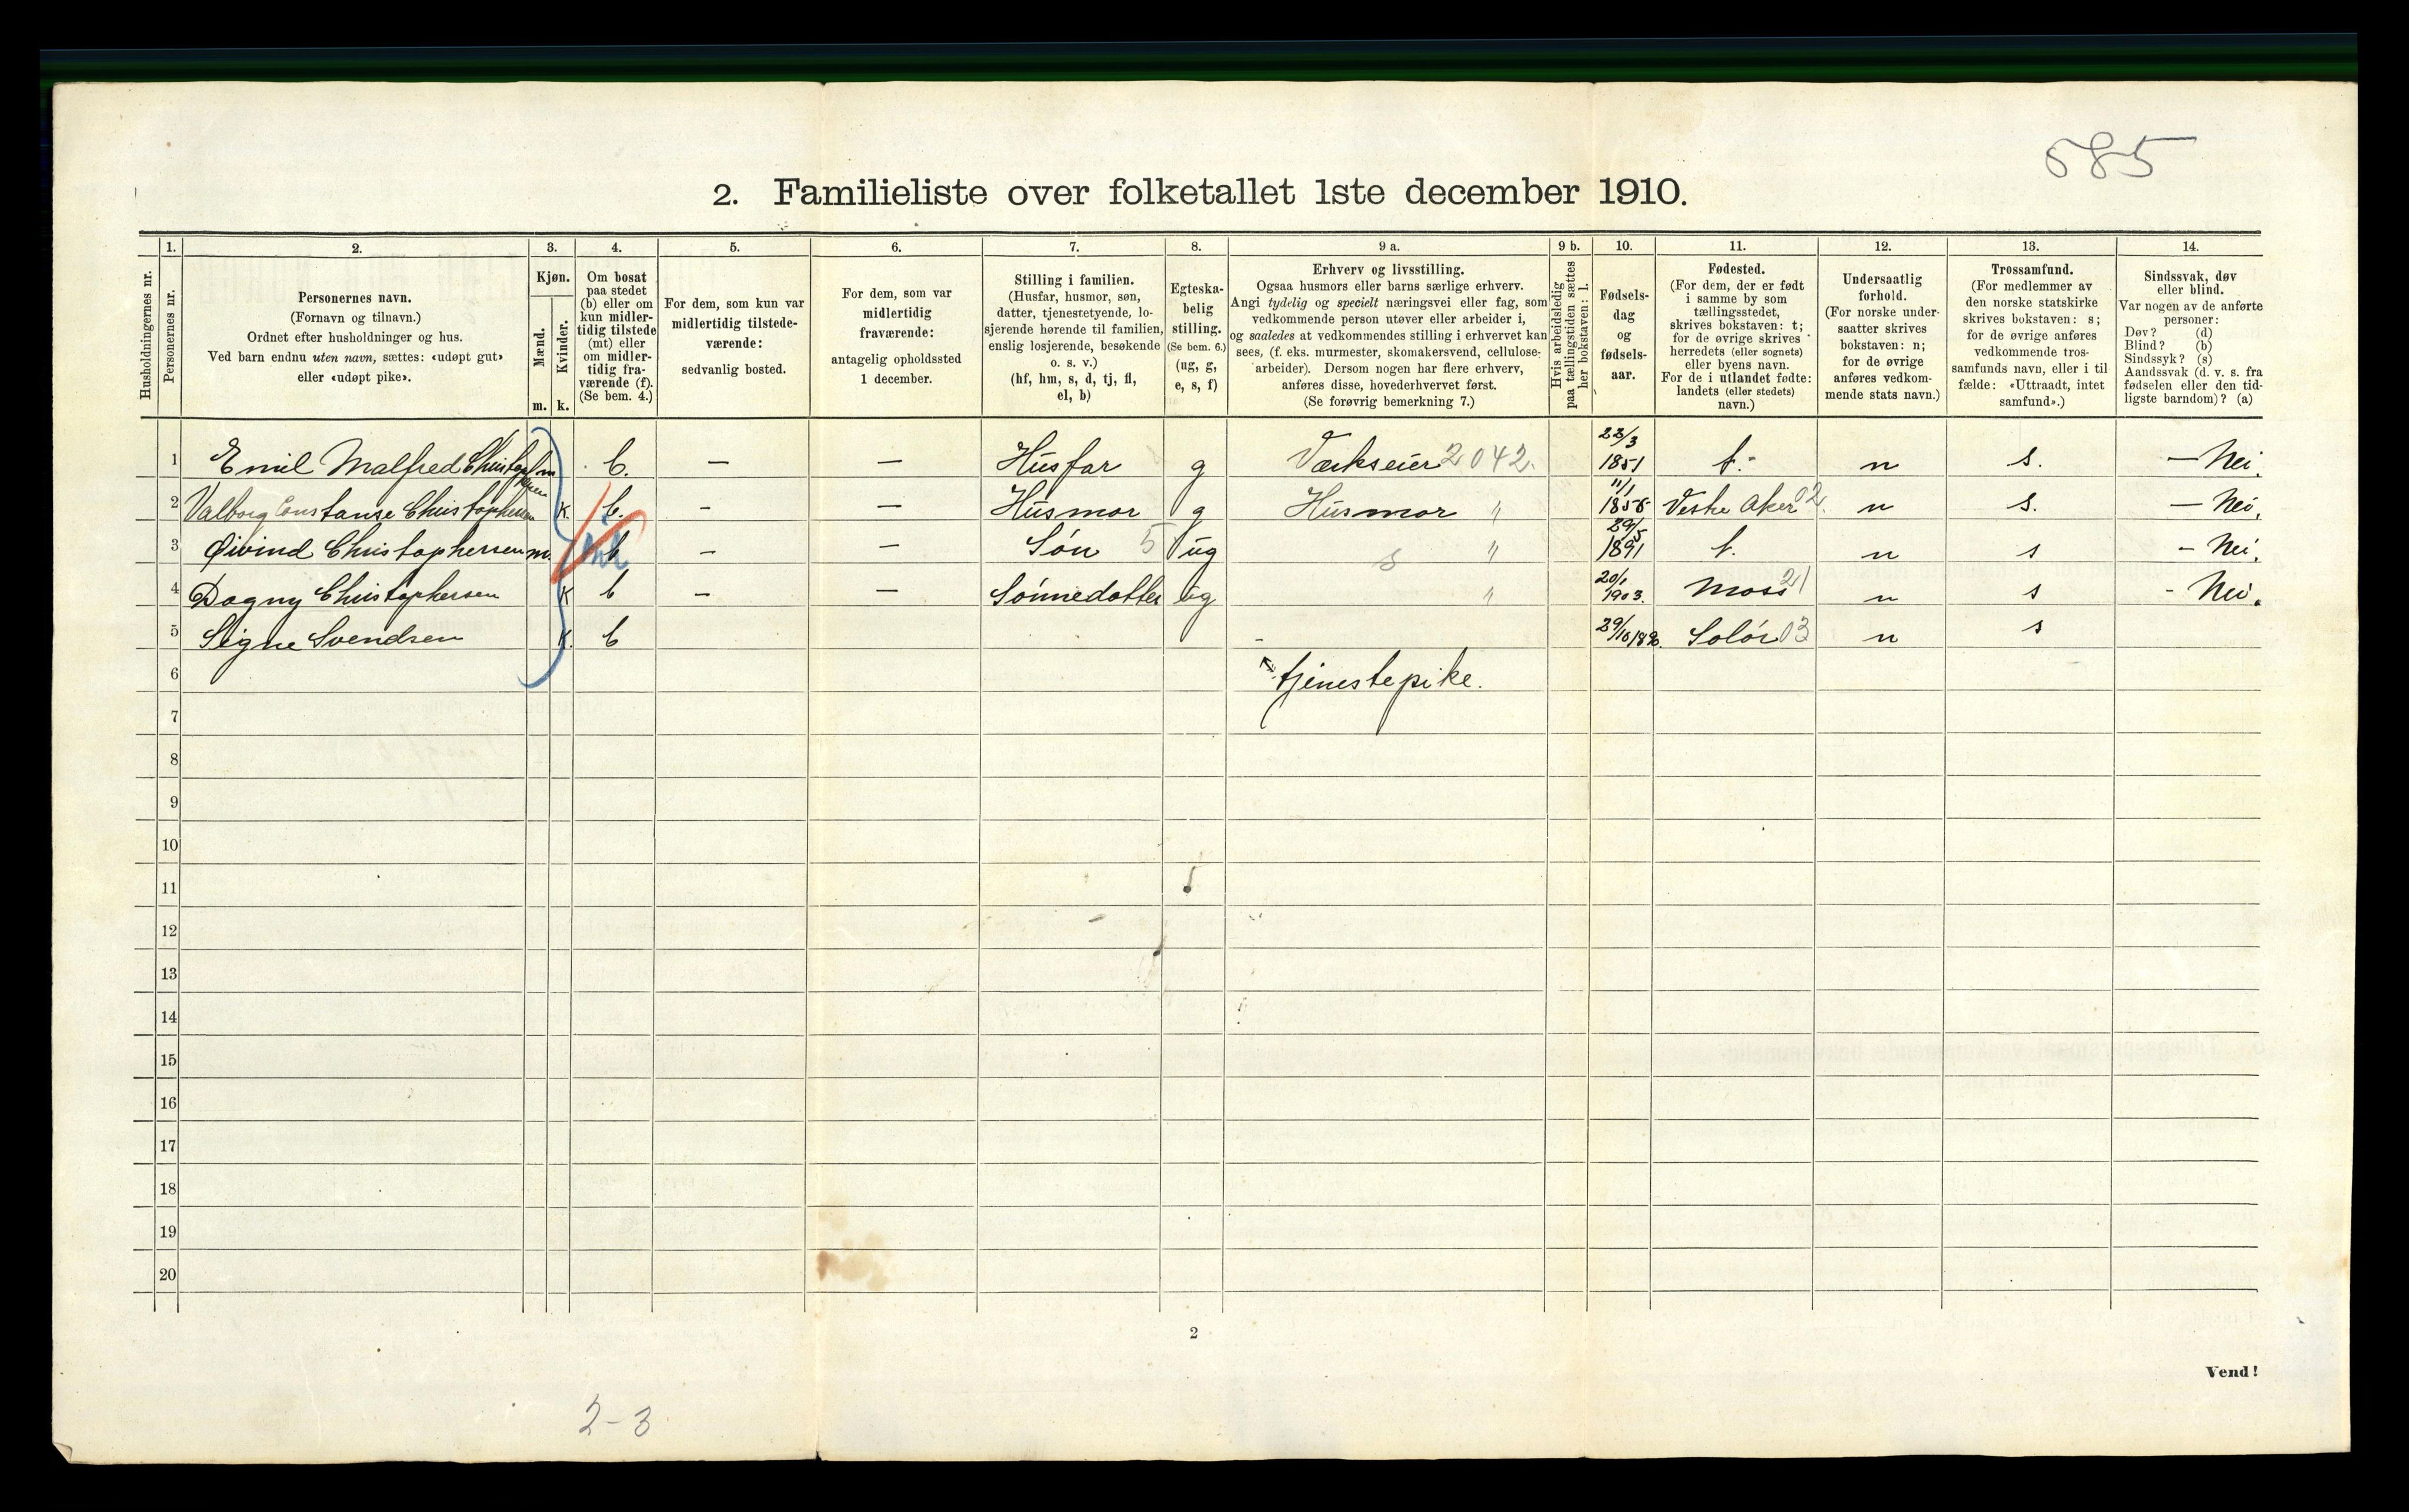 585
2. Familieliste over folketallet 1ste december 1910.
Husholdningernes nr.
1.
Personernes nr.
2.
Personernes navn.
(Fornavn og tilnavn.)
Ordnet efter husholdninger og hus.
Ved barn endnu uten navn, sættes: «udøpt gut»
eller «udøpt pike».
3.
Kjøn.
Mænd.
Kvinder.
m. k.
4.
Om bosat
paa stedet
(b) eller om
kun midler-
tidig tilstede
(mt) eller
om midler-
tidig fra-
værende (f).
(Se bem. 4.)
5.
For dem, som kun var
midlertidig tilstede-
værende:
sedvanlig bosted.
6.
For dem, som var
midlertidig
fraværende:
antagelig opholdssted
1 december.
7.
Stilling i familien.
(Husfar, husmor, søn,
datter, tjenestetyende, lo-
sjerende hørende til familien,
enslig losjerende, besøkende
o. s. v.)
(hf, hm, s, d, tj, fl,
el, b)
8.
Egteska-
belig
stilling.
(Se bem. 6.)
(ug, g,
e, s, f)
9 a.
Erhverv og livsstilling.
Ogsaa husmors eller barns særlige erhverv.
Angi tydelig og specielt næringsvei eller fag, som
vedkommende person utøver eller arbeider i,
og saaledes at vedkommendes stilling i erhvervet kan
sees, (f. eks. murmester, skomakersvend, cellulose-
arbeider). Dersom nogen har flere erhverv,
anføres disse, hovederhvervet først.
(Se forøvrig bemerkning 7.)
9 b.
Hvis arbeidsledig
paa tællingstiden sættes
her bokstaven: l.
10.
Fødsels-
dag
og
fødsels-
aar.
11.
Fødested.
(For dem, der er født
i samme by som
tællingsstedet,
skrives bokstaven: t;
for de øvrige skrives
herredets (eller sognets)
eller byens navn.
For de i utlandet fødte:
landets (eller stedets)
navn.)
12.
Undersaatlig
forhold.
(For norske under-
saatter skrives
bokstaven: n;
for de øvrige
anføres vedkom-
mende stats navn.)
13.
Trossamfund.
(For medlemmer av
den norske statskirke
skrives bokstaven: s;
for de øvrige anføres
vedkommende tros-
samfunds navn, eller i til-
fælde: «Uttraadt, intet
samfund».)
14.
Sindssvak, døv
eller blind.
Var nogen av de anførte
personer:
Døv? (d)
Blind? (b)
Sindssyk? (s)
Aandssvak (d. v. s. fra
fødselen eller den tid-
ligste barndom)? (a)
1 Emil Malfred Christophersen m b. — — Husfar g Værkseier 2042. 23/3 1851 t. n s. — Nei.
2 Valborg Constanse Christophersen K. b. - — Husmor g Husmor " 11/1 1856 Vestre Aker 02 n s. — Nei,
3 Øivind Christophersen m. b - — Søn 5 ug s " 29/5 1891 t. n s - Nei.
4 Dagny Christophersen K b - — Sønnedatter ug " 20/1 1903. Moss 21 n s - Nei.
5 Signe Svendsen K. b - 29/10 1890. Solør 03 n s
6 tjenestepike.
7
8
9
10
11
12
13
14
15
16
17
18
19
20
2
Vend!
2-3